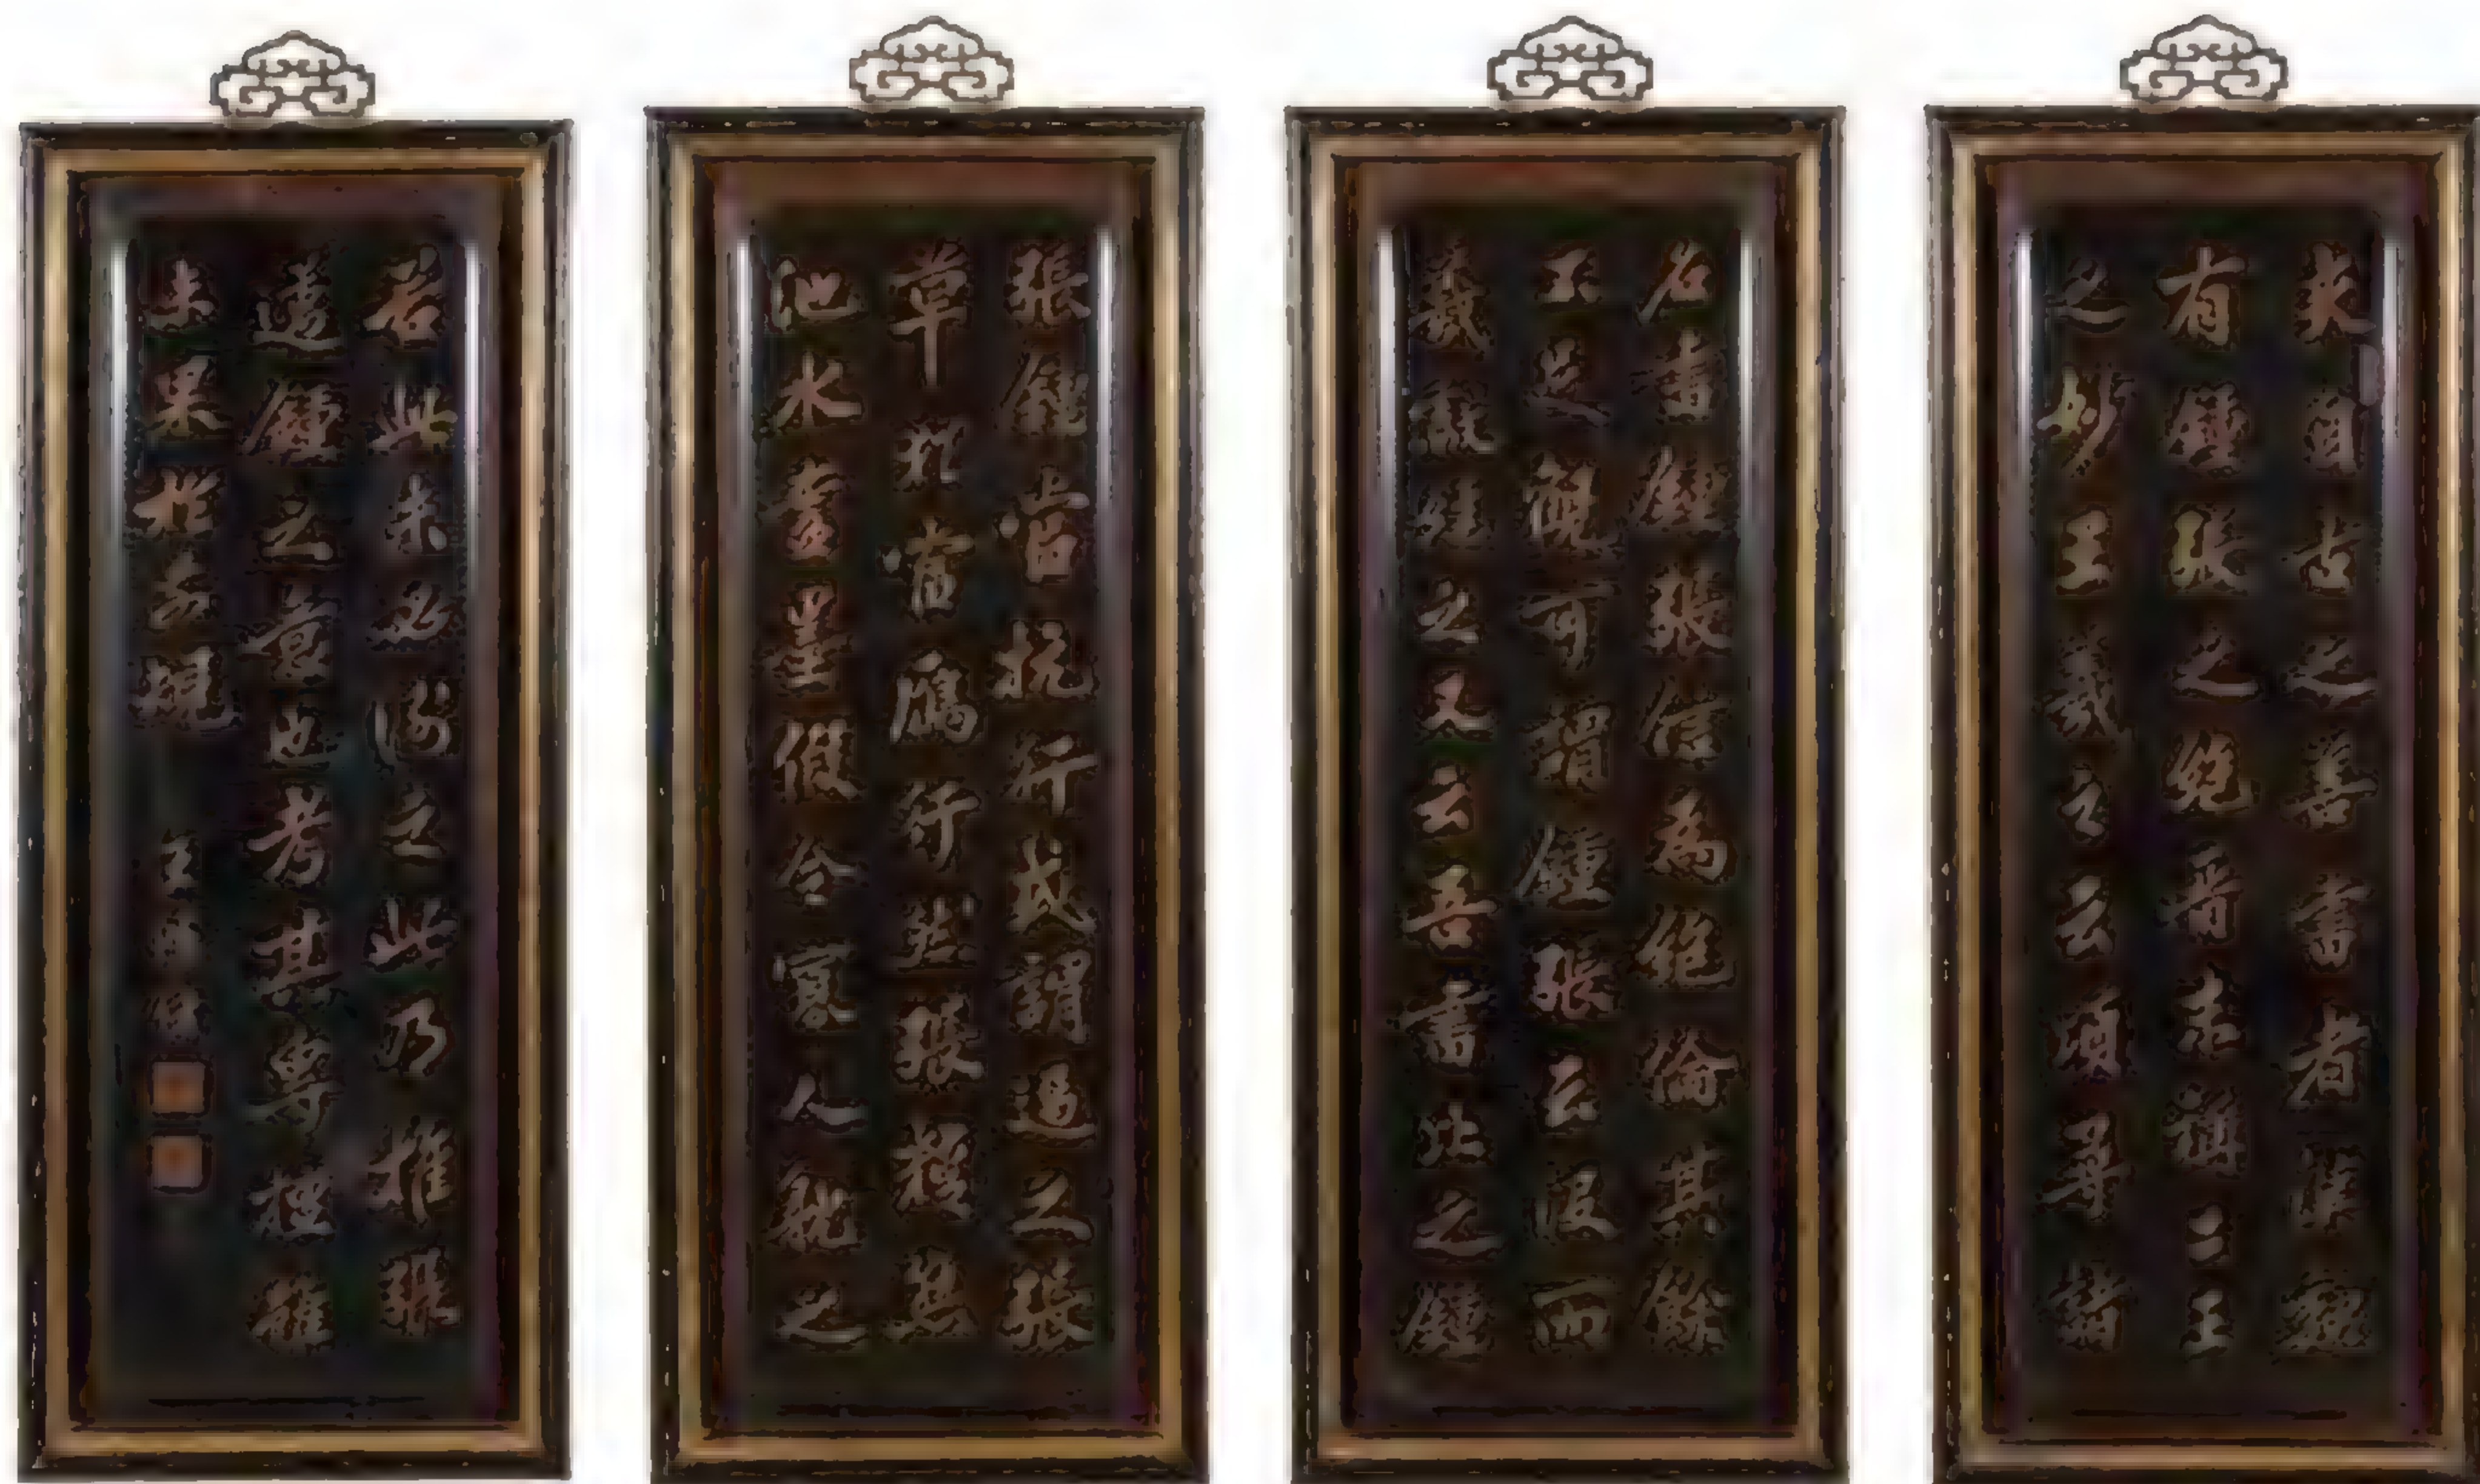 夫自古之善書者漢魏
有鍾張之絕晉末稱二王
之妙王羲之云頃尋諸
名書鍾張信為絕倫其餘
不足觀可謂鍾張云沒而
羲獻繼之又云吾書比之鍾
張鍾當抗行或謂過之張
草猶當鴈行然張精熟
池水盡墨假令寡人耽之
若此未必謝之此乃推張
邁鍾之意也考其專擅雖
未果於前規
王